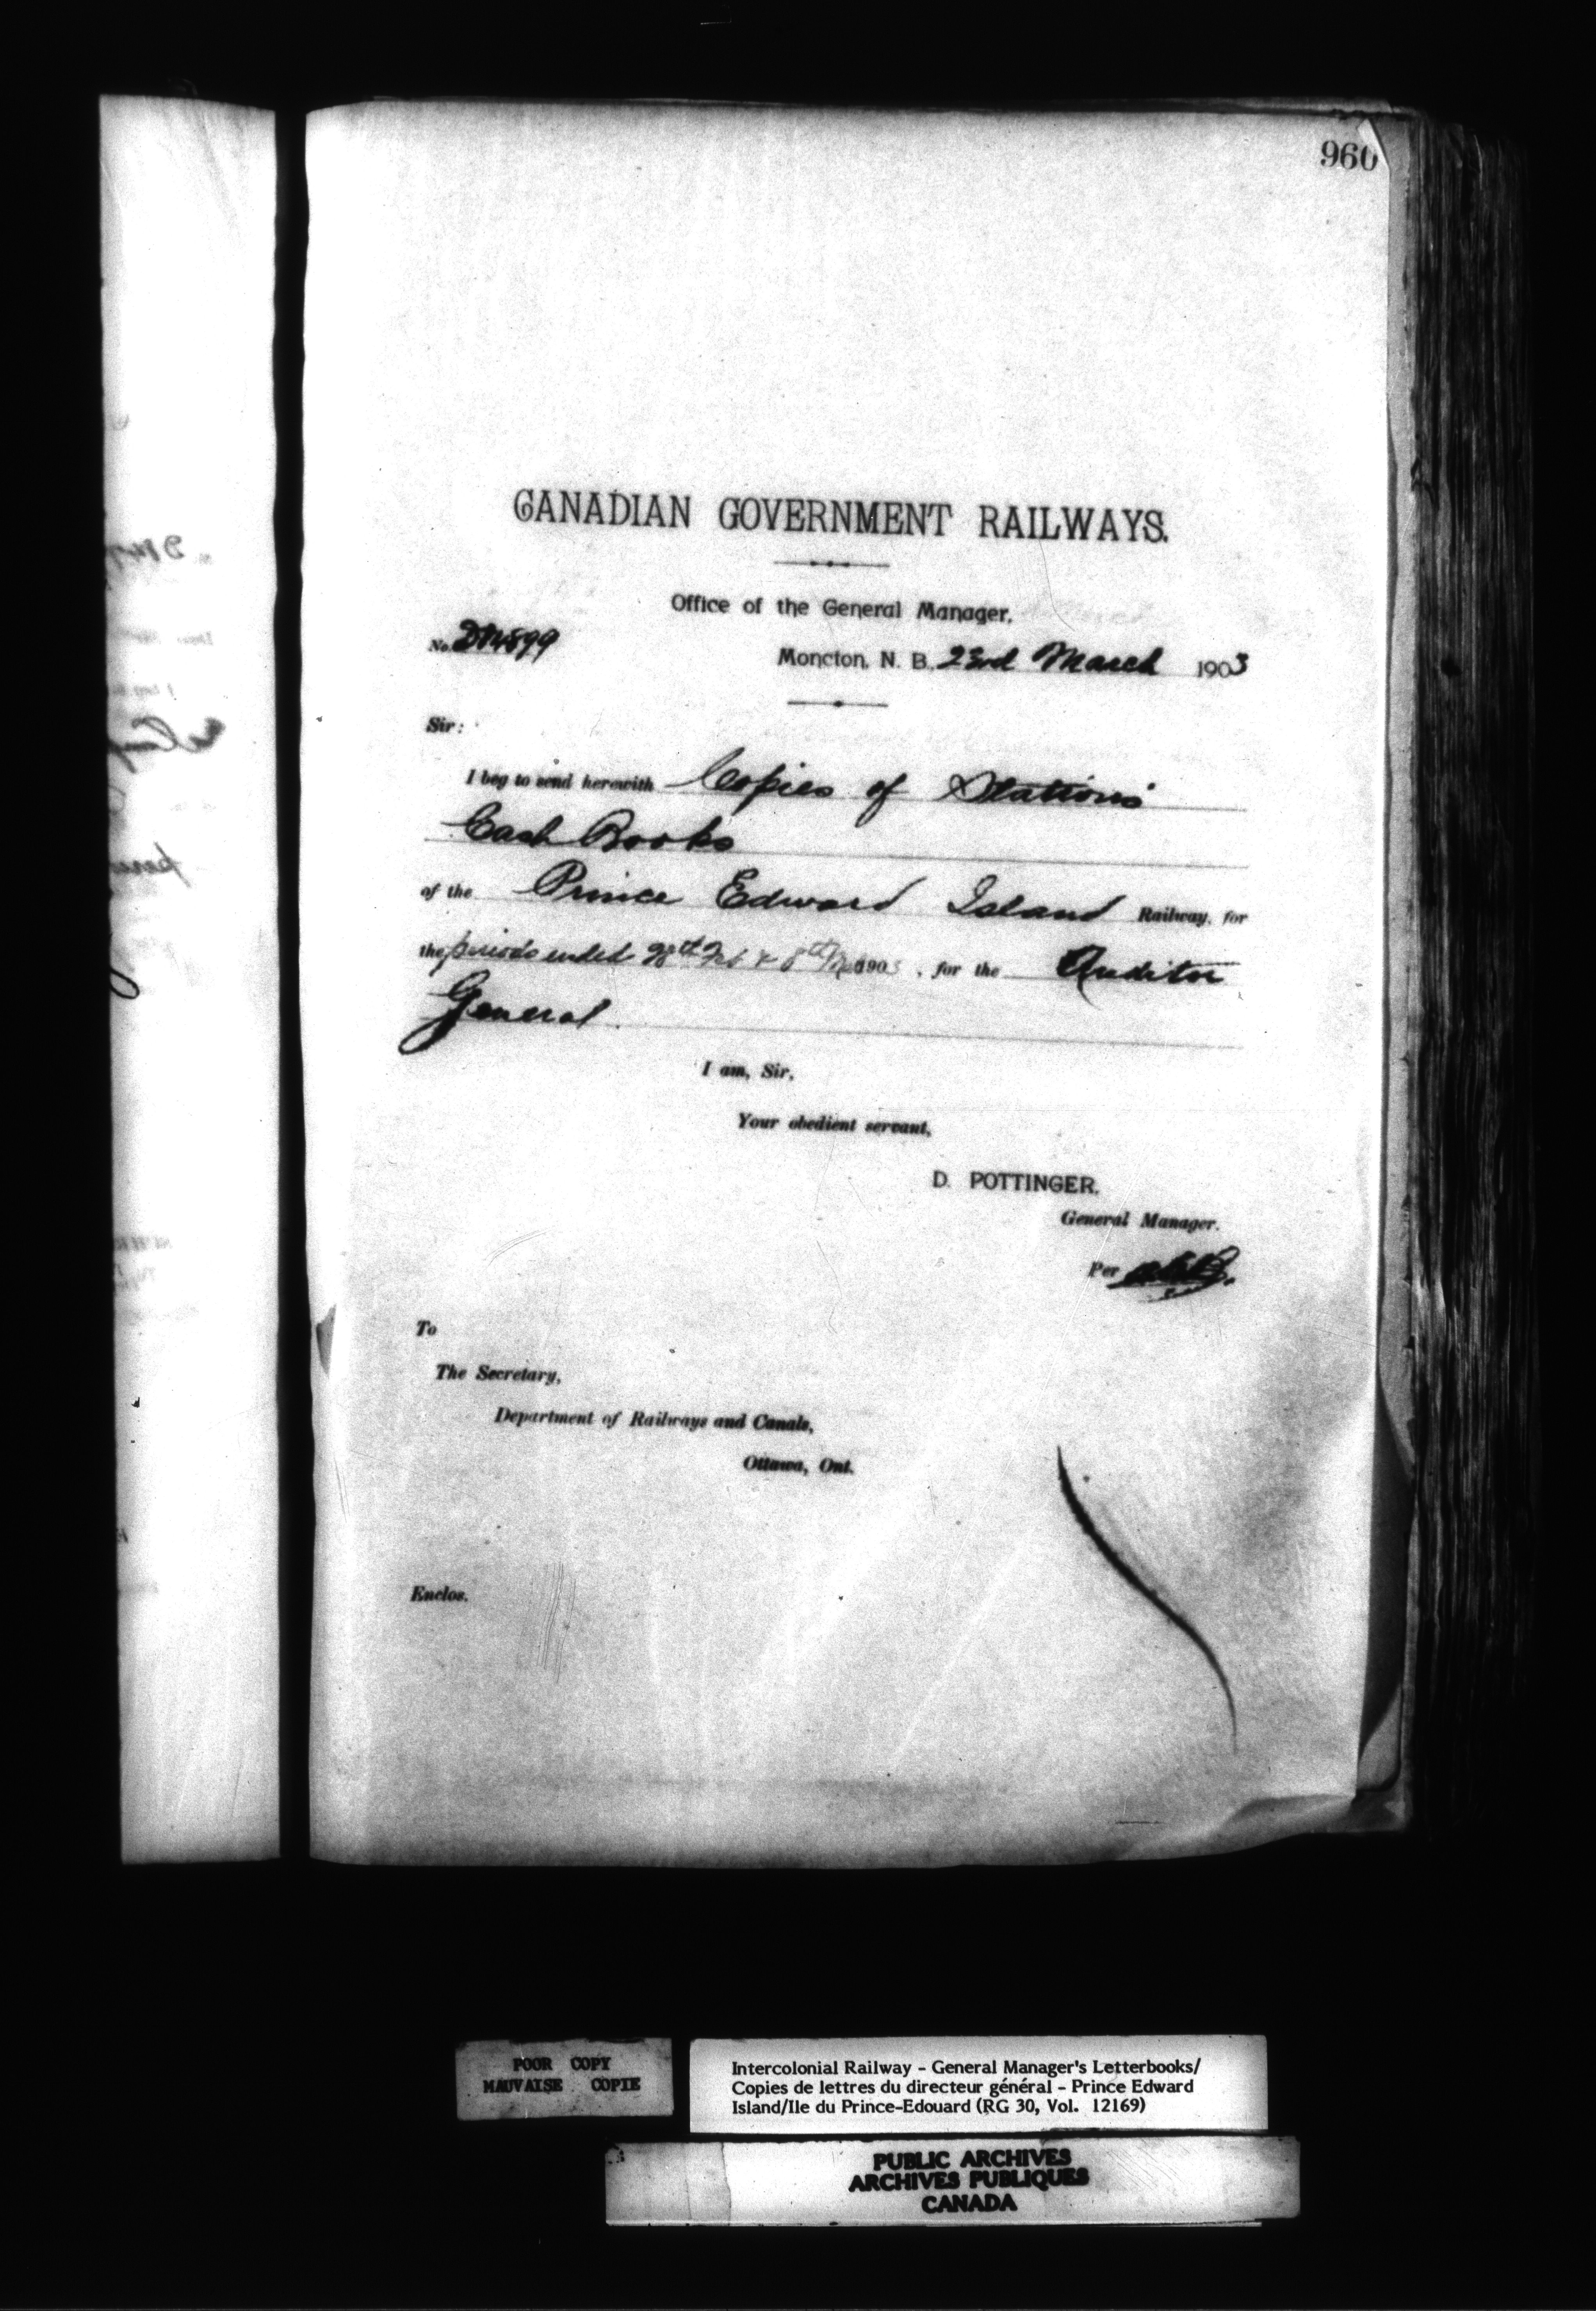 960
CANADIAN GOVERNMENT RAILWAYS.
Office of the General Manager,
No.
Moncton, N. B. 23rd March 1903
Sir:
I beg to send herewith Copies of Stations'
Cash Books
of the Prince Edward Island Railway, for
the periods ended 28th Feb & 8th 1903, for the Auditor
General
I am, Sir,
Your obedient servant,
D. POTTINGER,
General Manager.
Per
To
The Secretary,
Department of Railways and Canals,
Ottawa, Ont.
Enclos.
POOR COPY
MAUVAISE COPIE
Intercolonial Railway - General Manager's Letterbooks/
Copies de lettres du directeur général - Prince Edward
Island/Ile du Prince-Edouard (RG 30, Vol. 12169)
PUBLIC ARCHIVES
ARCHIVES PUBLIQUES
CANADA